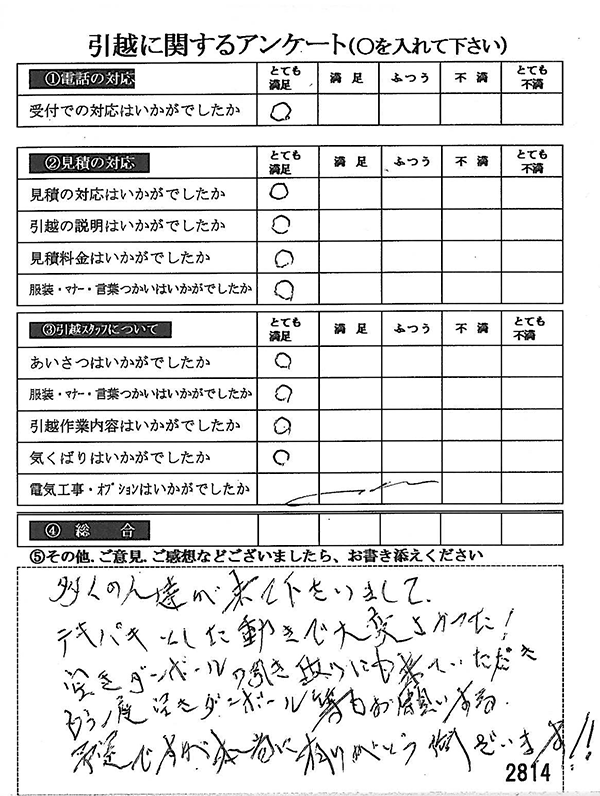 引越に関するアンケート(〇を入れて下さい)
①電話の対応 とても満足 満足 ふつう 不満 とても不満
受付での対応はいかがでしたか ○
②見積の対応 とても満足 満足 ふつう 不満 とても不満
見積の対応はいかがでしたか ○
引越の説明はいかがでしたか ○
見積料金はいかがでしたか ○
服装・マナー・言葉つかいはいかがでしたか ○
③引越スタッフについて とても満足 満足 ふつう 不満 とても不満
あいさつはいかがでしたか ○
服装・マナー・言葉つかいはいかがでしたか ○
引越作業内容はいかがでしたか ○
気くばりはいかがでしたか ○
電気工事・オプションはいかがでしたか
④総合
⑤その他、ご意見、ご感想などございましたら、お書き添えください
多くの人達が来て下さいまして、
テキパキとした動きで大変よかった!
空きダンボールの引き取りにも来ていただき
もう一度空きダンボール等お願いします。
ですが ありがとう ございます!!
2814